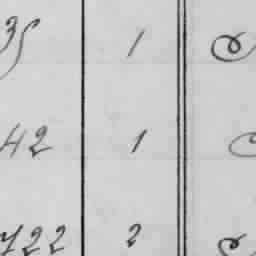 35 1
42 1
722 2